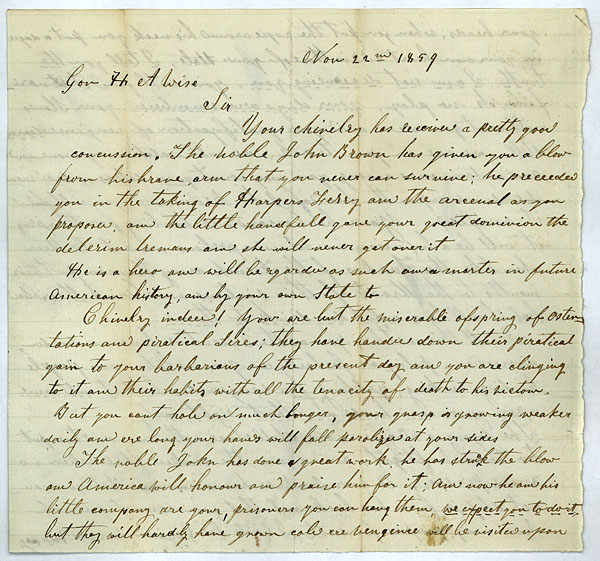 Nov 22nd 1859
Gov H A Wise
Sir
Your chivelry has receivd a pretty good
concussion. The noble John Brown has given you a blow
from his brave arm that you never can survive; he preceeded
you in the taking of Harpers Ferry and the arcenal as you
proposed, and the little handfull gave your great dominion the
delerim tremans and she will never get over it
He is a hero and will be regarded as such and a marter in future
American history, and by your own State to
Chivelry indeed! Your are but the miserable ofspring of osten-
tations and piratical Sires; they have handed down their piratical
gain to your barbarians of the present day and you are clinging
to it and their habits with all the tenacity of death to his victom.
But you cant hold on much longer, your grasp is growing weaker
daily and ere long your hands will fall paralized at your sides
The noble John has done a great work, he has struck the blow
and America will honour and praise him for it; And now he and his
little company are your, prisoners you can hang them, we expect you to do it,
but they will hardly have grown cold ere vengince will be visited upon